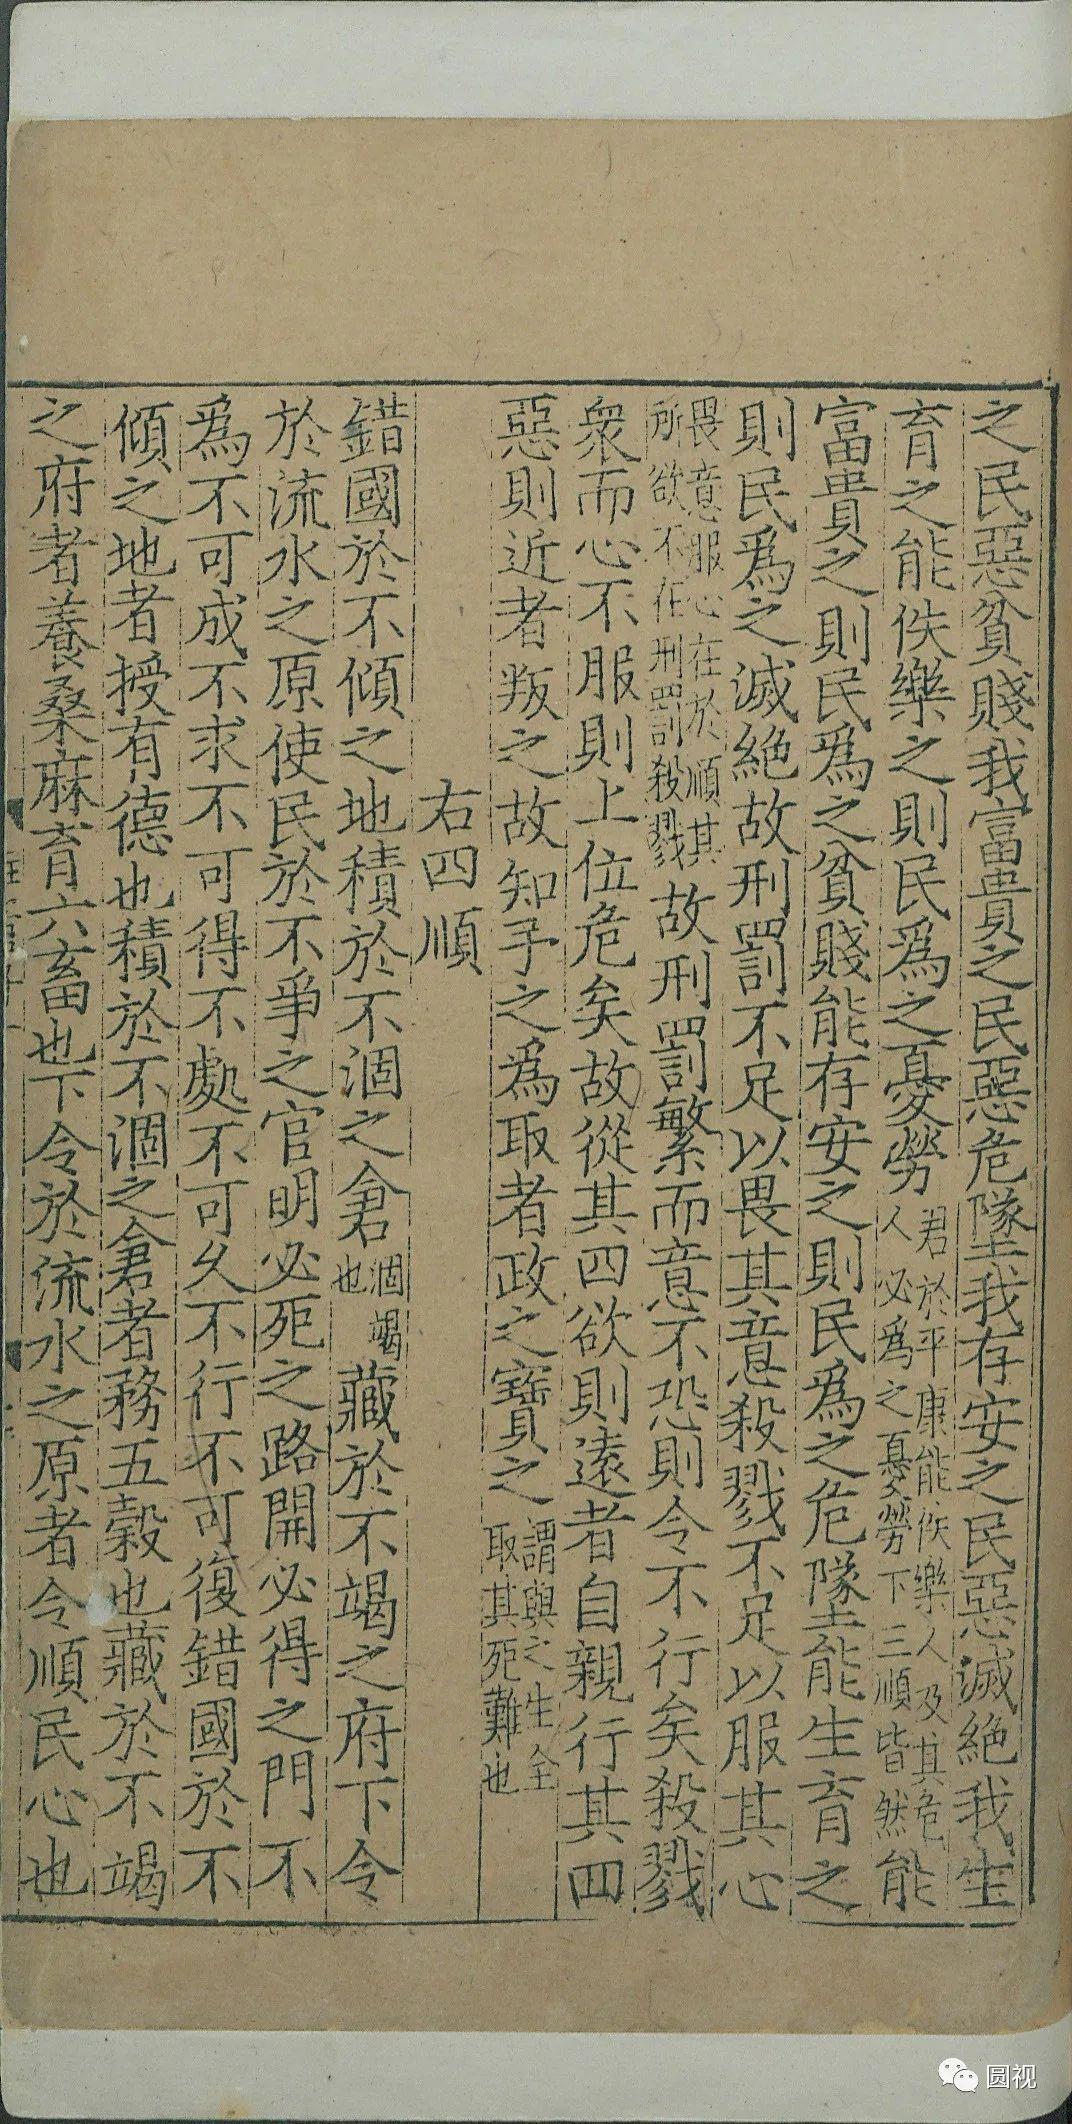 之民惡貧賤我富貴之民惡危墜我存安之民惡滅絶我生
育之能佚樂之則民爲之憂勞君於平康能佚樂人及其危人必爲之憂勞下三順皆然能
富貴之則民爲之貧賤能存安之則民爲之危墜能生育之
則民爲之滅絶故刑罰不足以畏其意殺戮不足以服其心
畏意服心在於順其所欲不在刑罰殺戮故刑罰繁而意不恐則令不行矣殺戮
衆而心不服則上位危矣故從其四欲則遠者自親行其四
惡則近者叛之故知予之爲取者政之寶之謂與之生全取其死難也
右四順
錯國於不傾之地積於不涸之倉涸竭也藏於不竭之府下令
於流水之原使民於不爭之官明必死之路開必得之門不
爲不可成不求不可得不處不可久不行不可復錯國於不
傾之地者授有德也積於不涸之倉者務五穀也藏於不竭
之府者養桑麻育六畜也下令於流水之原者令順民心也
圆视